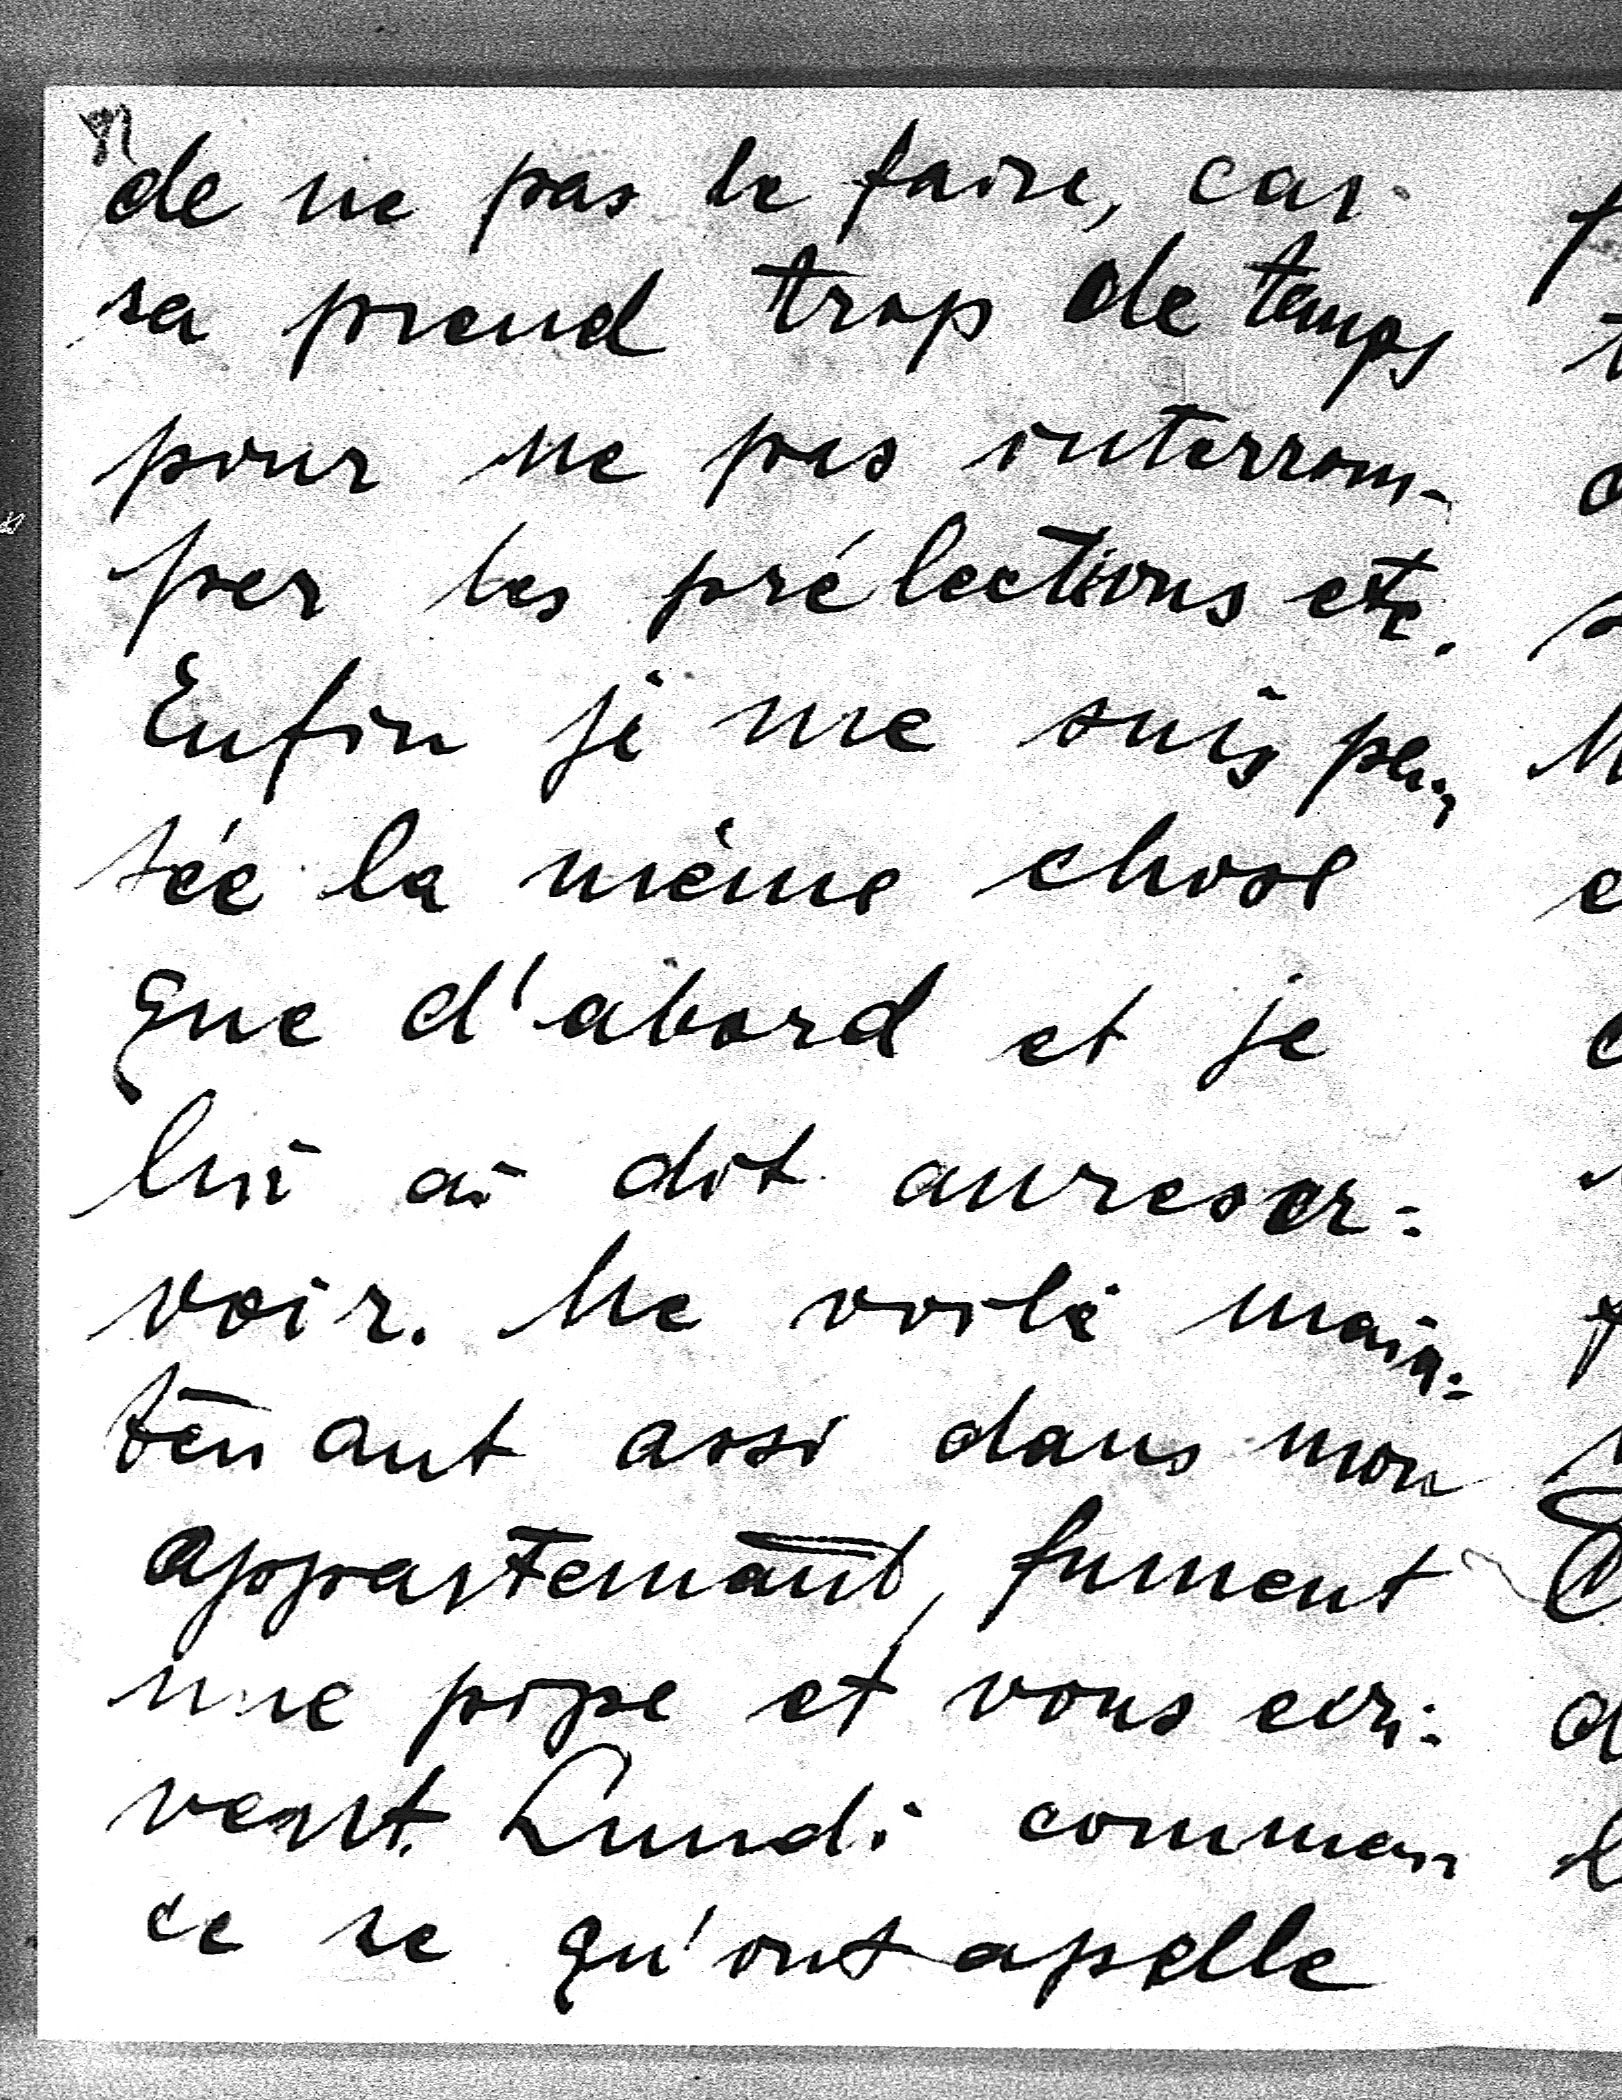 de ne pas le faire, car
sa prend trop de temps
pour ne pas interrom-
per les prélections etc.
Enfin je me suis pen,
sée la même chose
que d'abord et je
lui ai dit aureser=
voir. Me voilà main=
tenant assi dans mon
appartemant, fument
une pipe et vous ecri=
vent. Lundi comman
ce se qu'ont apelle